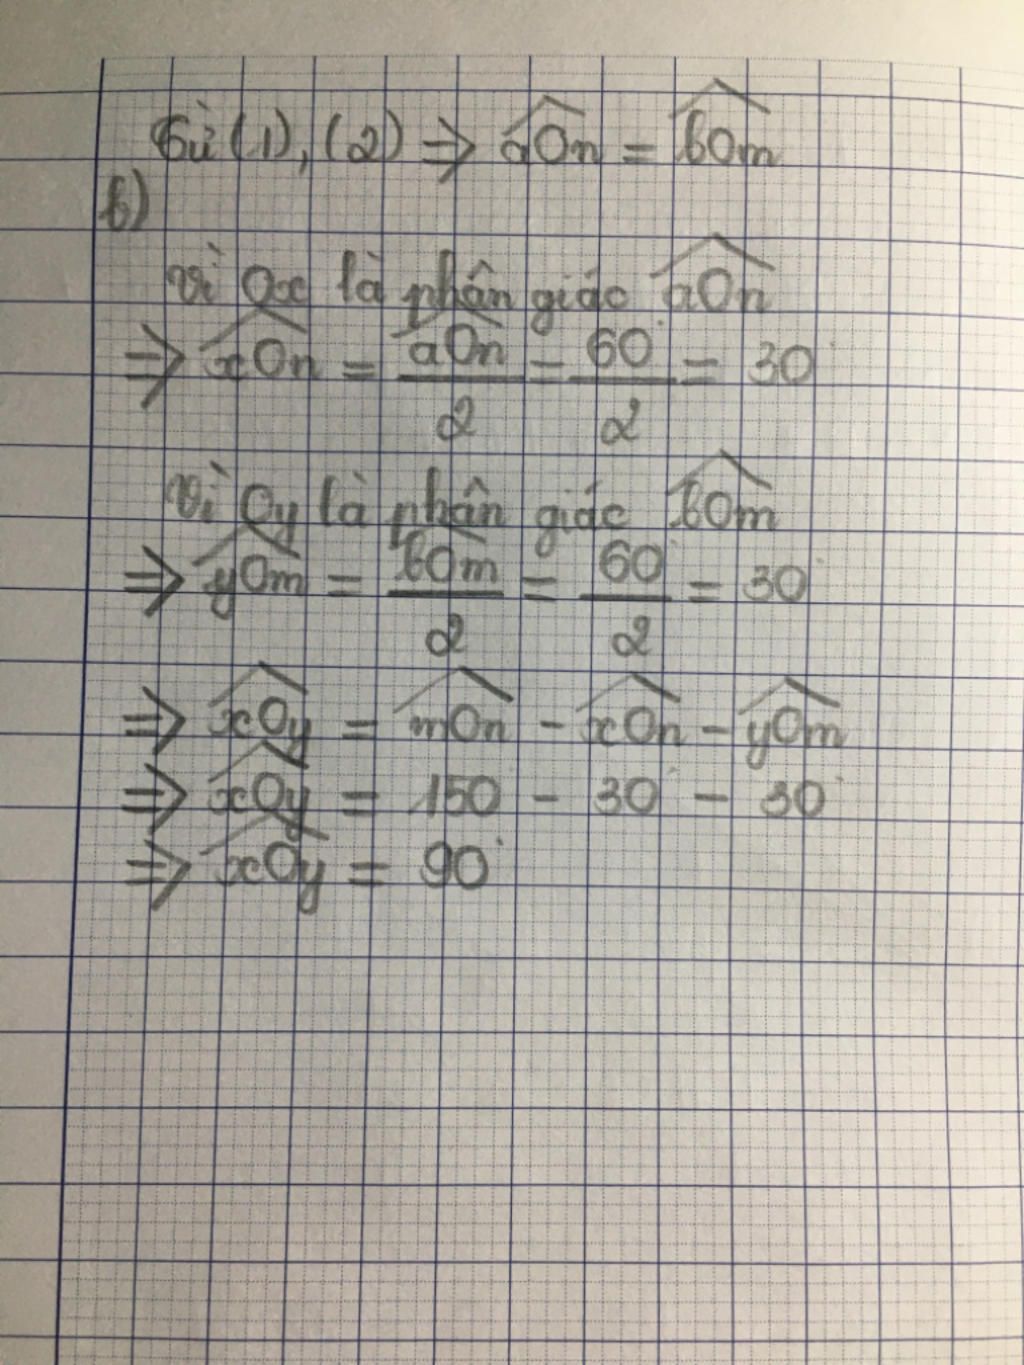 Từ (1), (2) ⇒ aOn = bOm
b)
Vì Ox là phân giác aOn
⇒ xOn = aOn/2 = 60°/2 = 30°
Vì Oy là phân giác bOm
⇒ yOm = bOm/2 = 60°/2 = 30°
⇒ xOy = mOn - xOn - yOm
⇒ xOy = 150° - 30° - 30°
⇒ xOy = 90°